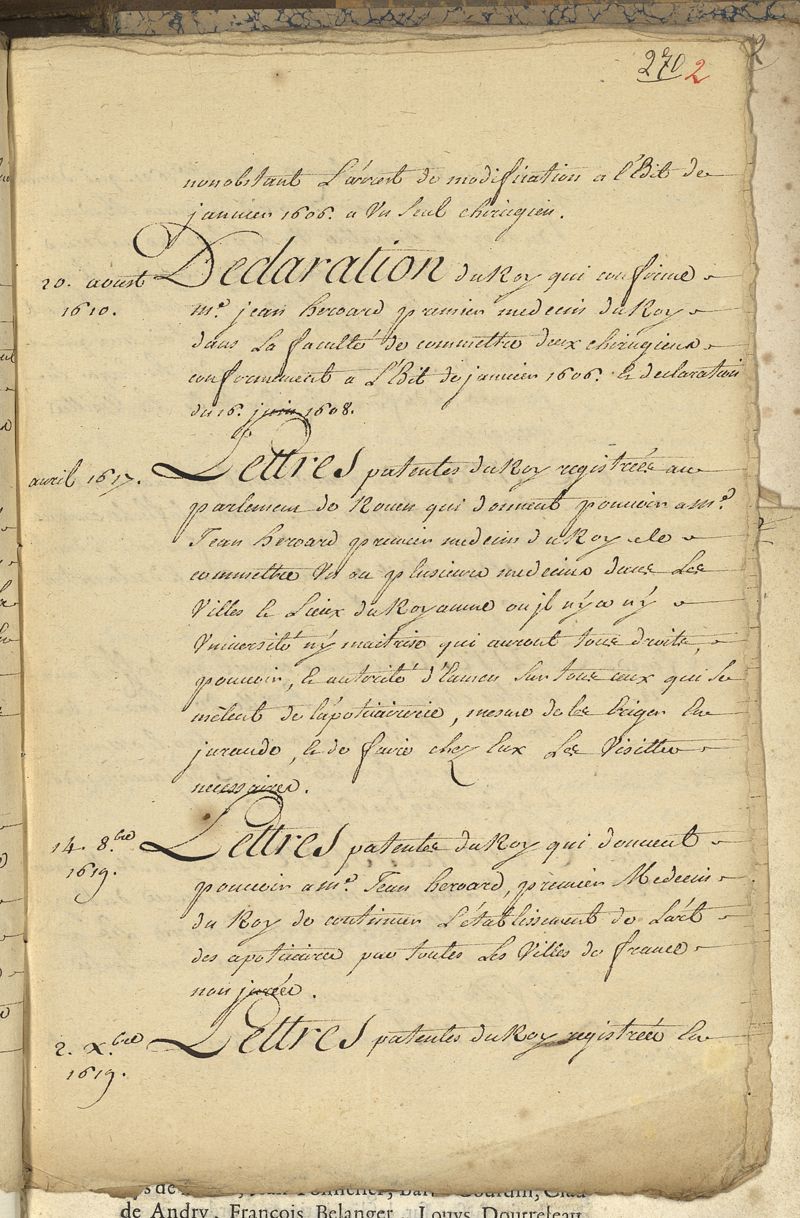 270 2
nonobstant L'arrest de modification a l'Edit de
janvier 1606. a Vn seul chirugien.
20. aoust 1610.
Declaration du Roy qui confirme
mr. jean heroard premier medecin du Roy
dans La faculté de commettre deux chirugiens
conformement a L'Edit de janvier 1606. & declaration
du 16. juin 1608.
avril 1617.
Lettres patentes du Roy registrées au
parlement de Rouen qui donnent pouvoir a mr.
Jean heroard premier medecin du Roy de
commettre Vn ou plusieurs medecins dans Les
Villes & Lieux du Royaume ou jl n'y a n'y
Vniversité n'y maitrise qui auront tous droits,
pouvoir, & autorité d'Examen sur tous ceux qui se
mêlent de l'apoticairerie, mesme de les Eriger En
jurande, & de faire chez Eux Les Visittes
necessaires.
14. 8.bre 1619.
Lettres patentes du Roy qui donnent
pouvoir a mr. Jean heroard, premier Medecin
du Roy de continuer L'établissement de L'art
des apoticaires par toutes Les Villes de france
non jurées.
2. X.bre 1619.
Lettres patentes du Roy registrées En
de Andry, François Belanger, Louys